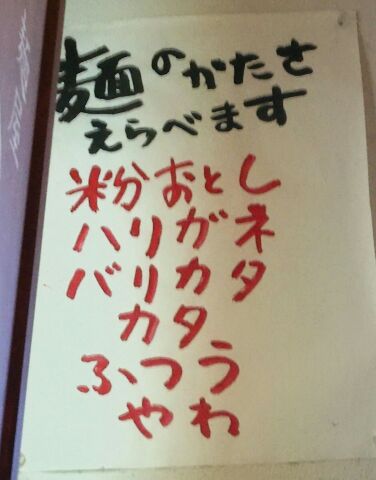 麺のかたさ
えらべます
粉おとし
ハリガネ
バリカタ
カタ
ふつう
やわ